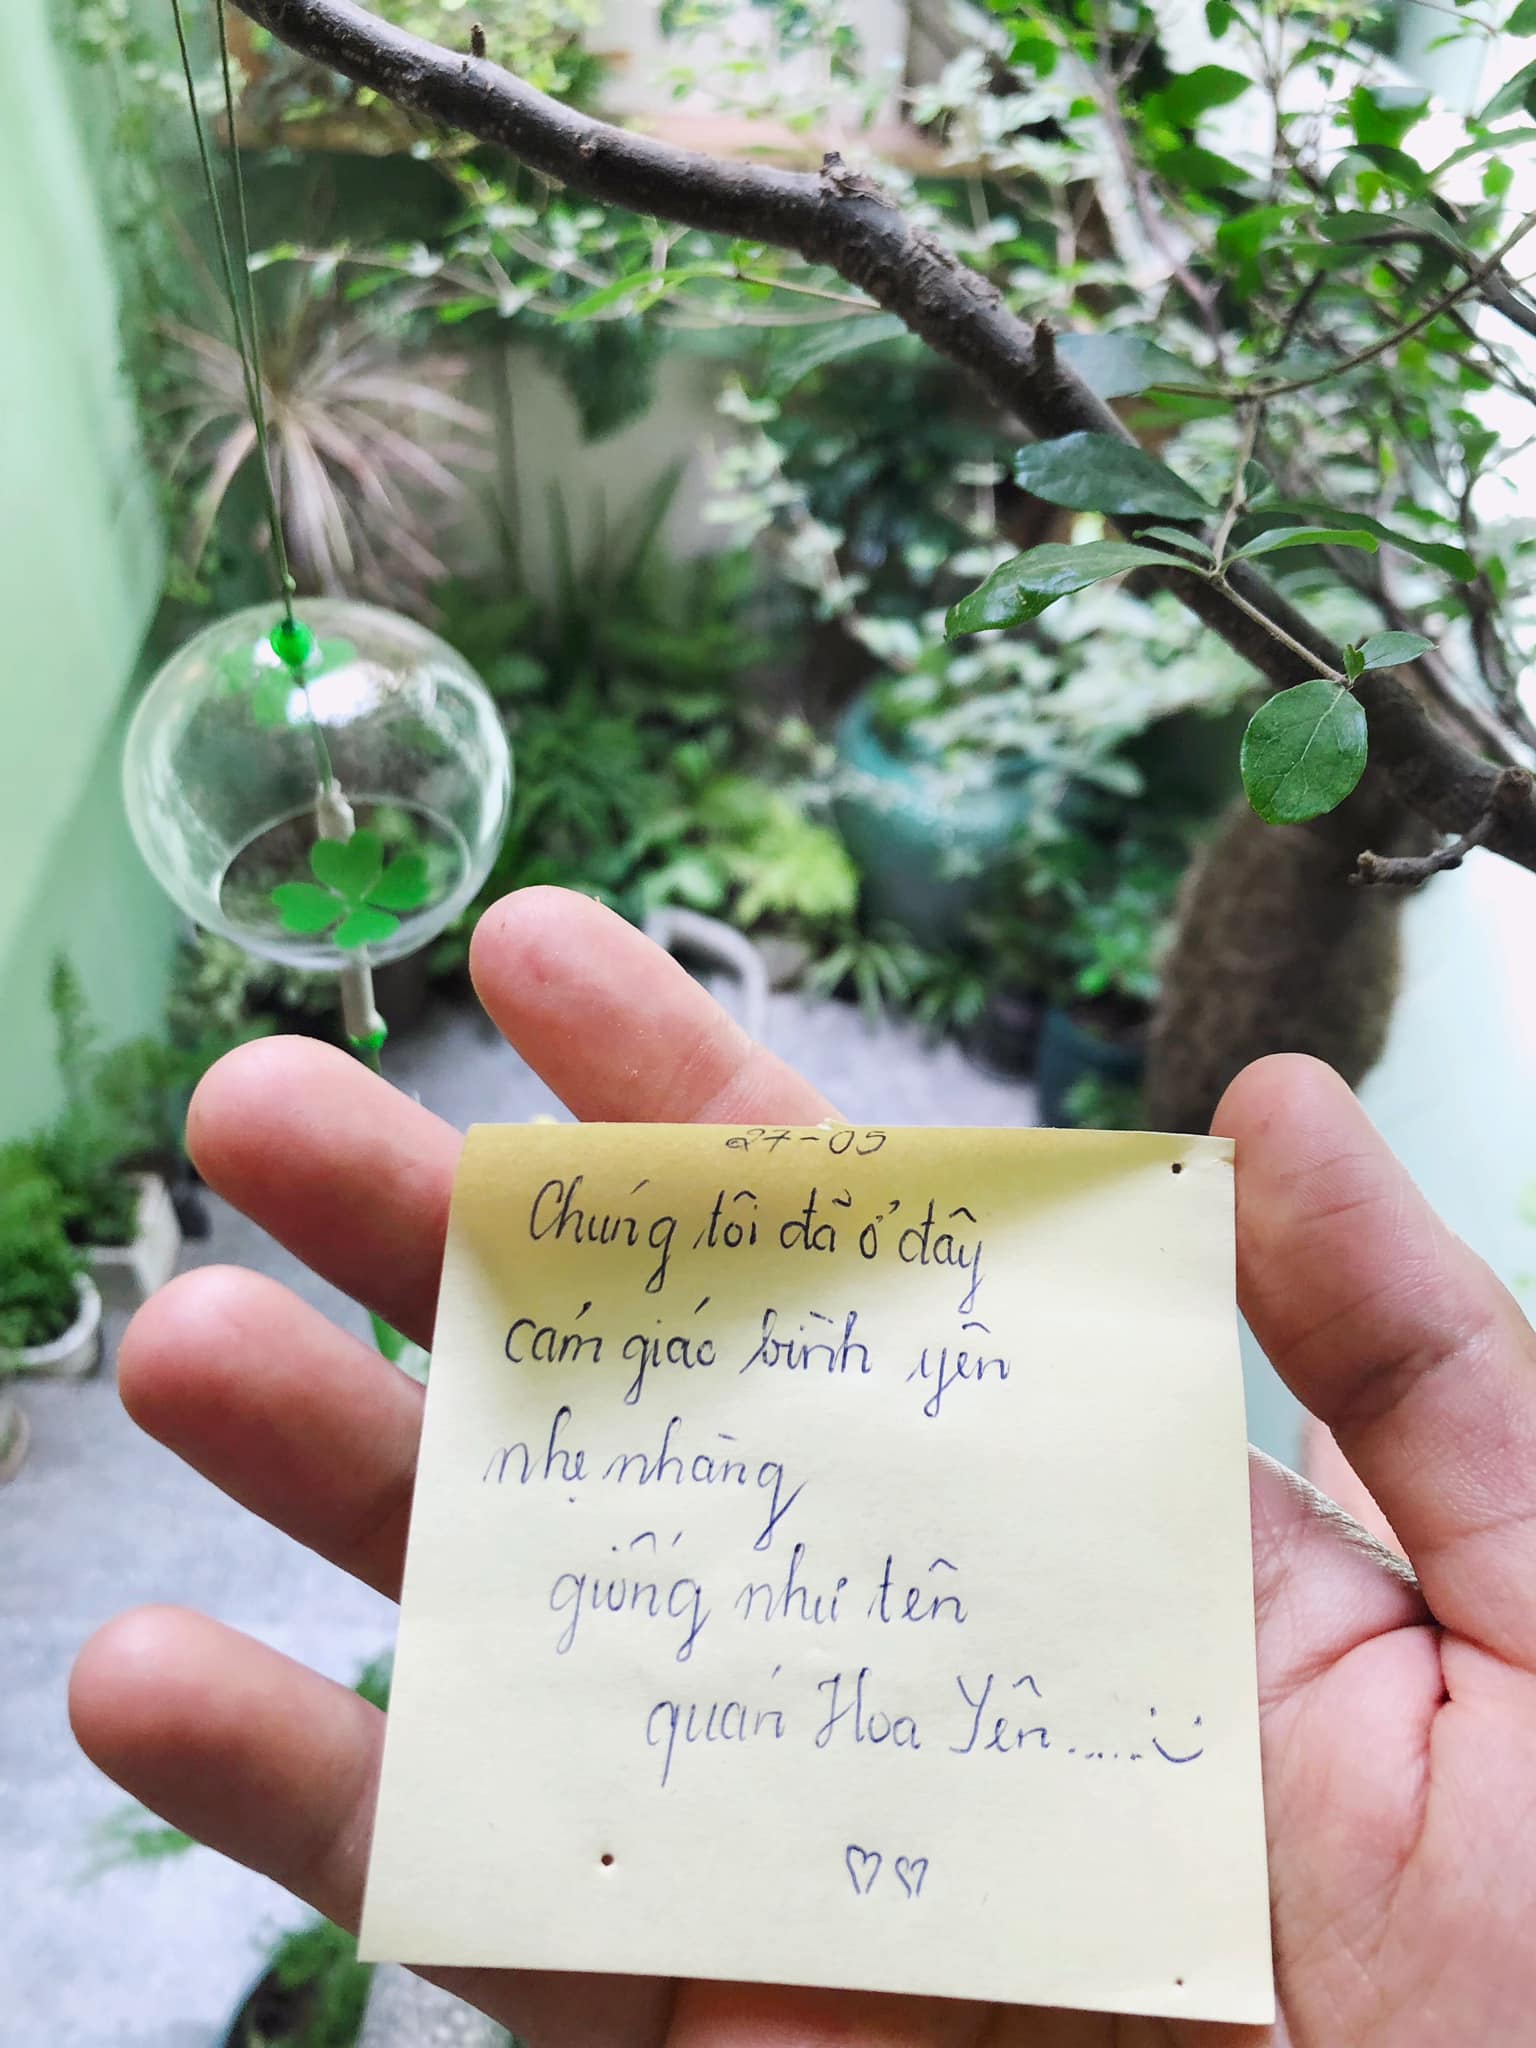 27-05
Chúng tôi đã ở đây
cảm giác bình yên
nhẹ nhàng
giống như tên
quán Hoa Yên.....